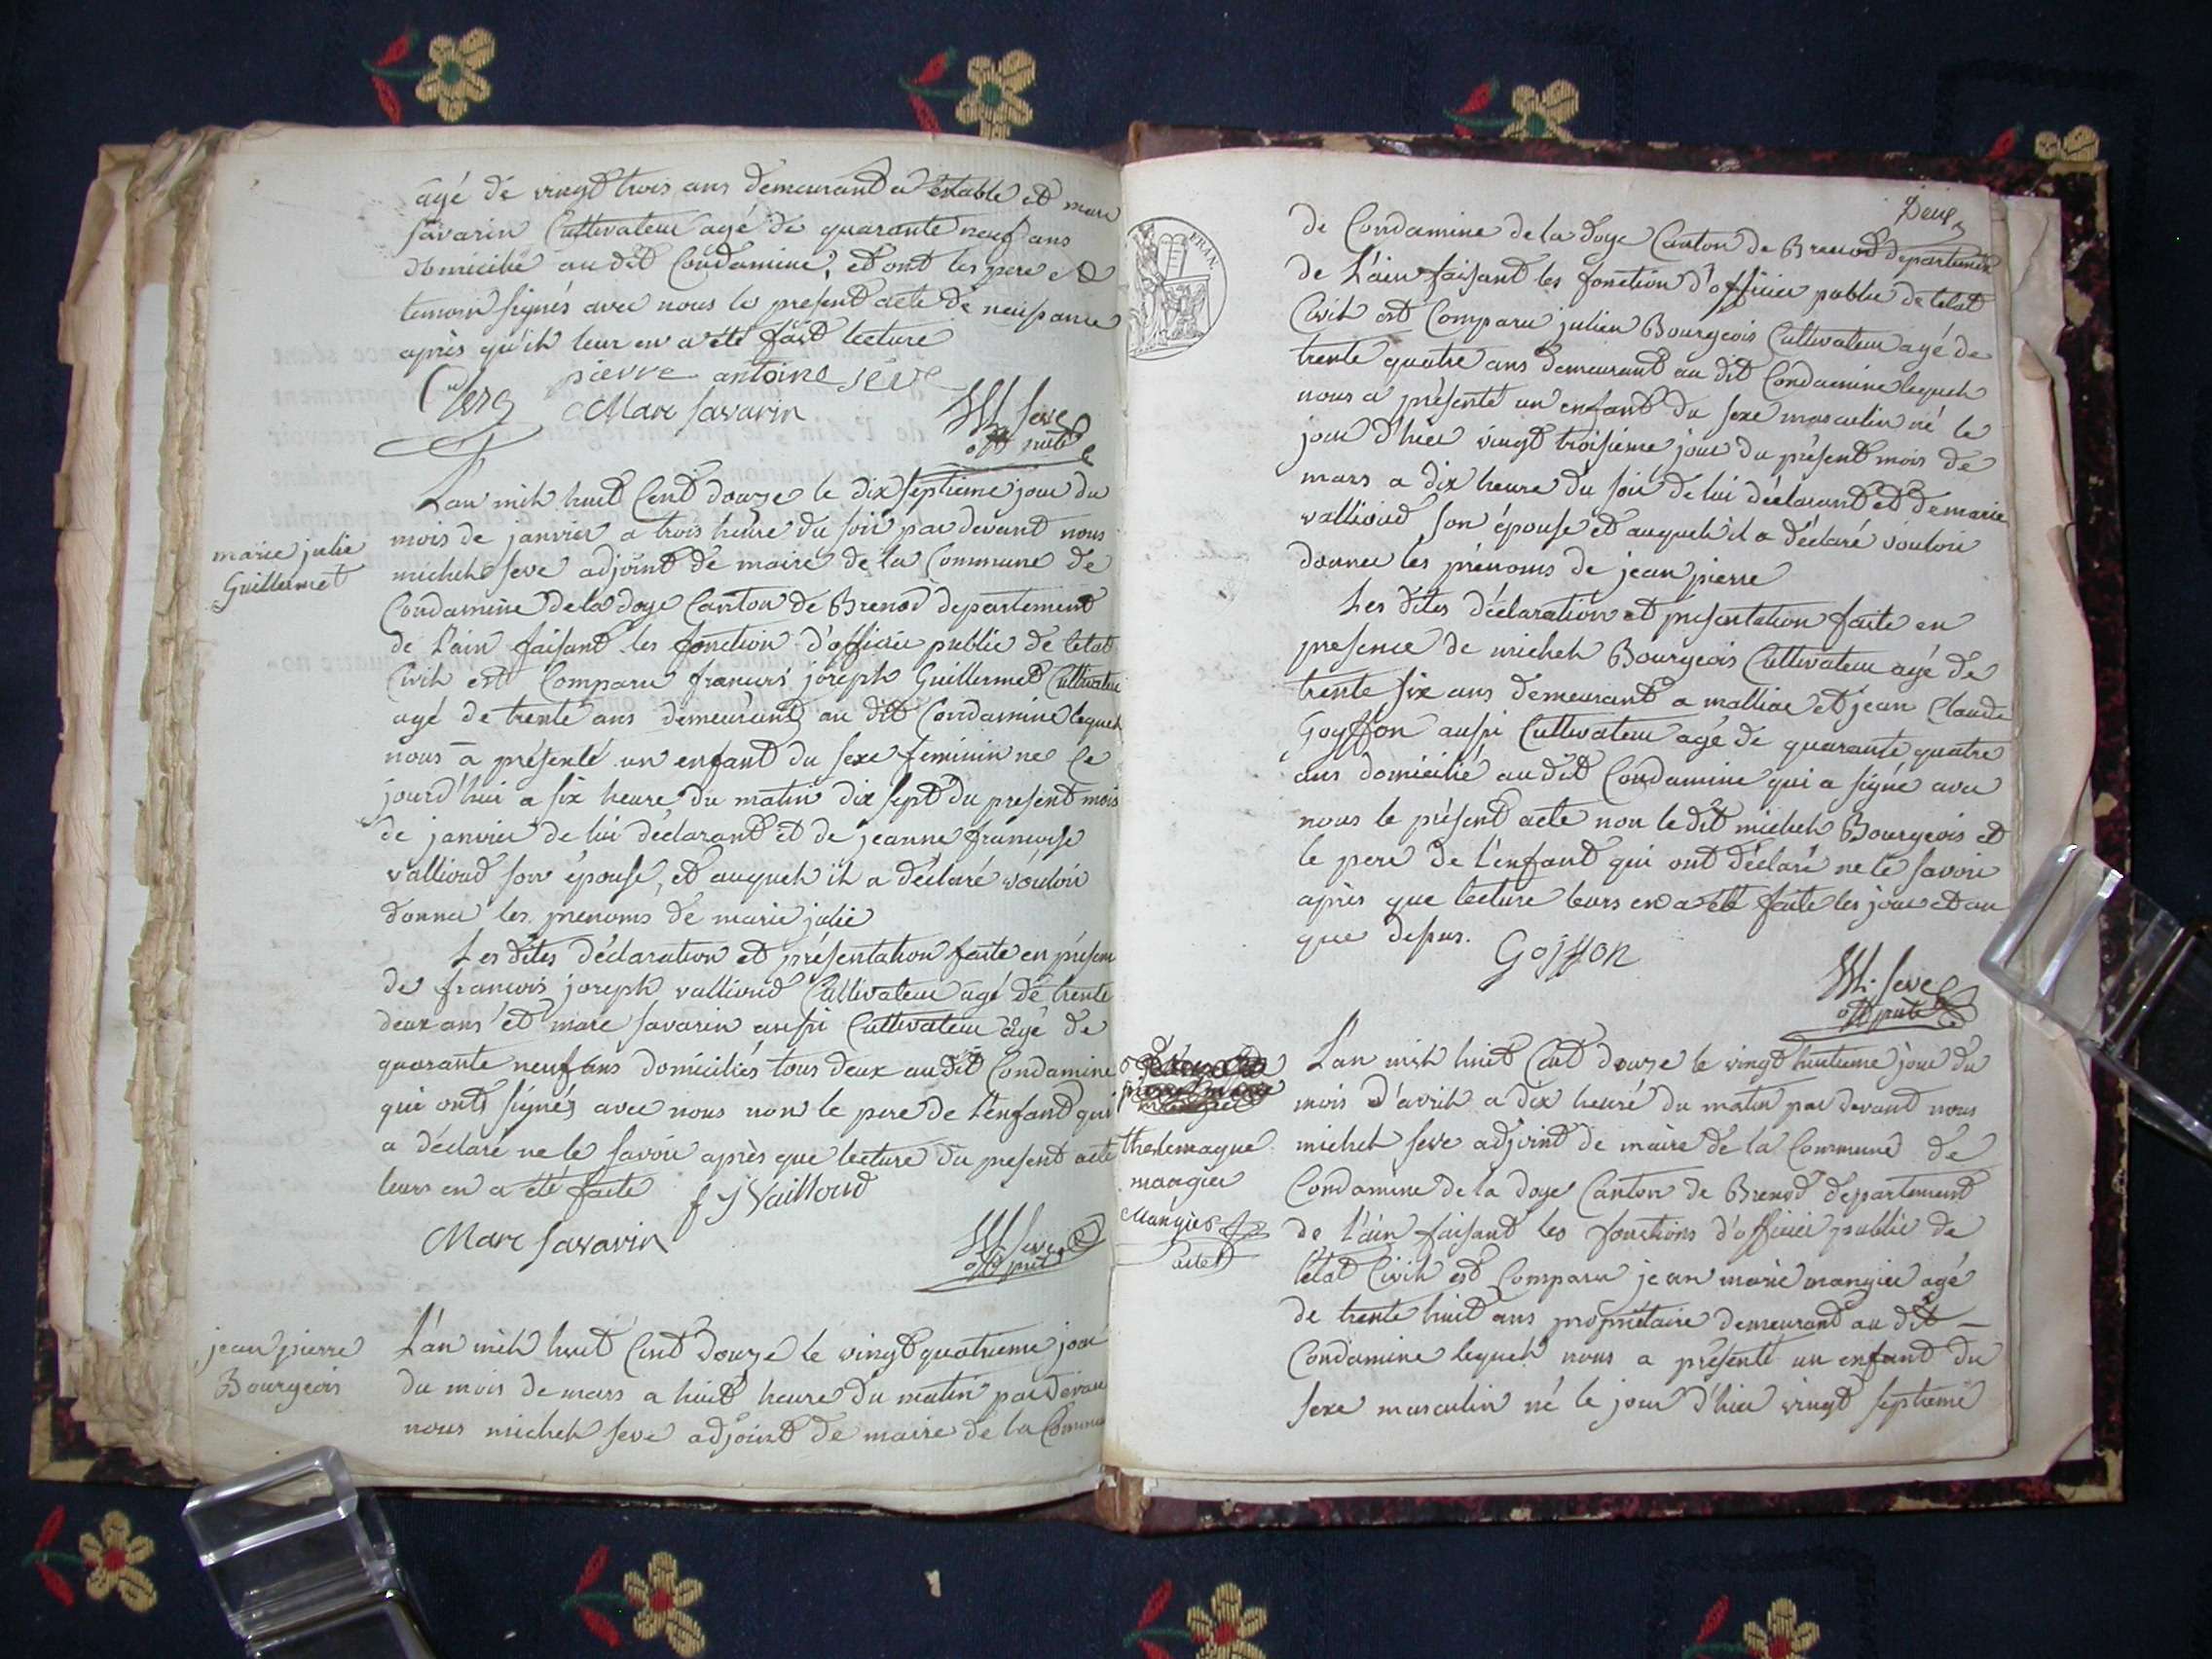 agé de vingt trois ans demeurant a étable et marc
savarin Cultivateur agé de quarante neuf ans
domicilié au dit Condamine, et ont les pere et
temoin signés avec nous le present acte de naissance
après qu'il leur en a été fait lecture
pierre antoine seve
Marc savarin
M seve
off publ
L'an mil huit Cent douze le dix septieme jour du
mois de janvier a trois heure du soir par devant nous
michel seve adjoint de maire de la Commune de
Condamine de la doye Canton de Brenod departement
de l'ain faisant les fonction d'officier public de letat
Civil est Comparu francois joseph Guillermet Cultivateur
agé de trente ans demeurant au dit Condamine lequel
nous a présenté un enfant du sexe feminin ne ce
jourd'hui a six heure du matin dix sept du present mois
de janvier de lui déclarant et de jeanne francoise
vallioud son épouse, et auquel il a déclaré vouloir
donner les prenoms de marie julie
Les dites déclaration et présentation faite en présence
de francois joseph vallioud Cultivateur agé de trente
deux ans et marc savarin aussi Cultivateur agé de
quarante neuf ans domiciliés tous deux au dit Condamine
qui onts signés avec nous non le pere de l'enfant qui
a déclaré ne le savoir après que lecture du present acte
leurs en a été faite
f J Vailloud
Marc savarin
M seve
off publ
marie julie
Guillermet
jean pierre
Bourgeois
L'an mil huit Cent douze le vingt quatrieme jour
du mois de mars a huit heure du matin par devant
nous michel seve adjoint de maire de la Commune
Deux
FRAN.
de Condamine de la doye Canton de Brenod departement
de L'ain faisant les fonction d'officier public de letat
Civil est Comparu julien Bourgeois Cultivateur agé de
trente quatre ans demeurant au dit Condamine lequel
nous a présenté un enfant du sexe masculin né le
jour d'hier vingt troisieme jour du présent mois de
mars a dix heure du soir de lui déclarant et de marie
vallioud son épouse et auquel il a déclaré vouloir
donner les prénoms de jean pierre
Les dites déclaration et présentation faite en
presence de michel Bourgeois Cultivateur agé de
trente six ans demeurant a malliac et jean Claude
Goyffon aussi Cultivateur agé de quarante quatre
ans domicilié au dit Condamine qui a signé avec
nous le présent acte non le dit michel Bourgeois et
le pere de l'enfant qui ont déclaré ne le savoir
après que lecture leurs en a été faite les jour et an
que dessus.
Goiffon
M. seve
off publ
thelemaque
mangier
Mangier
L'an mil huit Cent douze le vingt huitieme jour du
mois d'avril a dix heure du matin par devant nous
michel seve adjoint de maire de la Commune de
Condamine de la doye Canton de Brenod departement
de l'ain faisant les fonctions d'officier public de
létat Civil est Comparu jean marie mangier agé
de trente huit ans propriétaire demeurant au dit
Condamine lequel nous a présenté un enfant du
sexe masculin né le jour d'hier vingt septieme